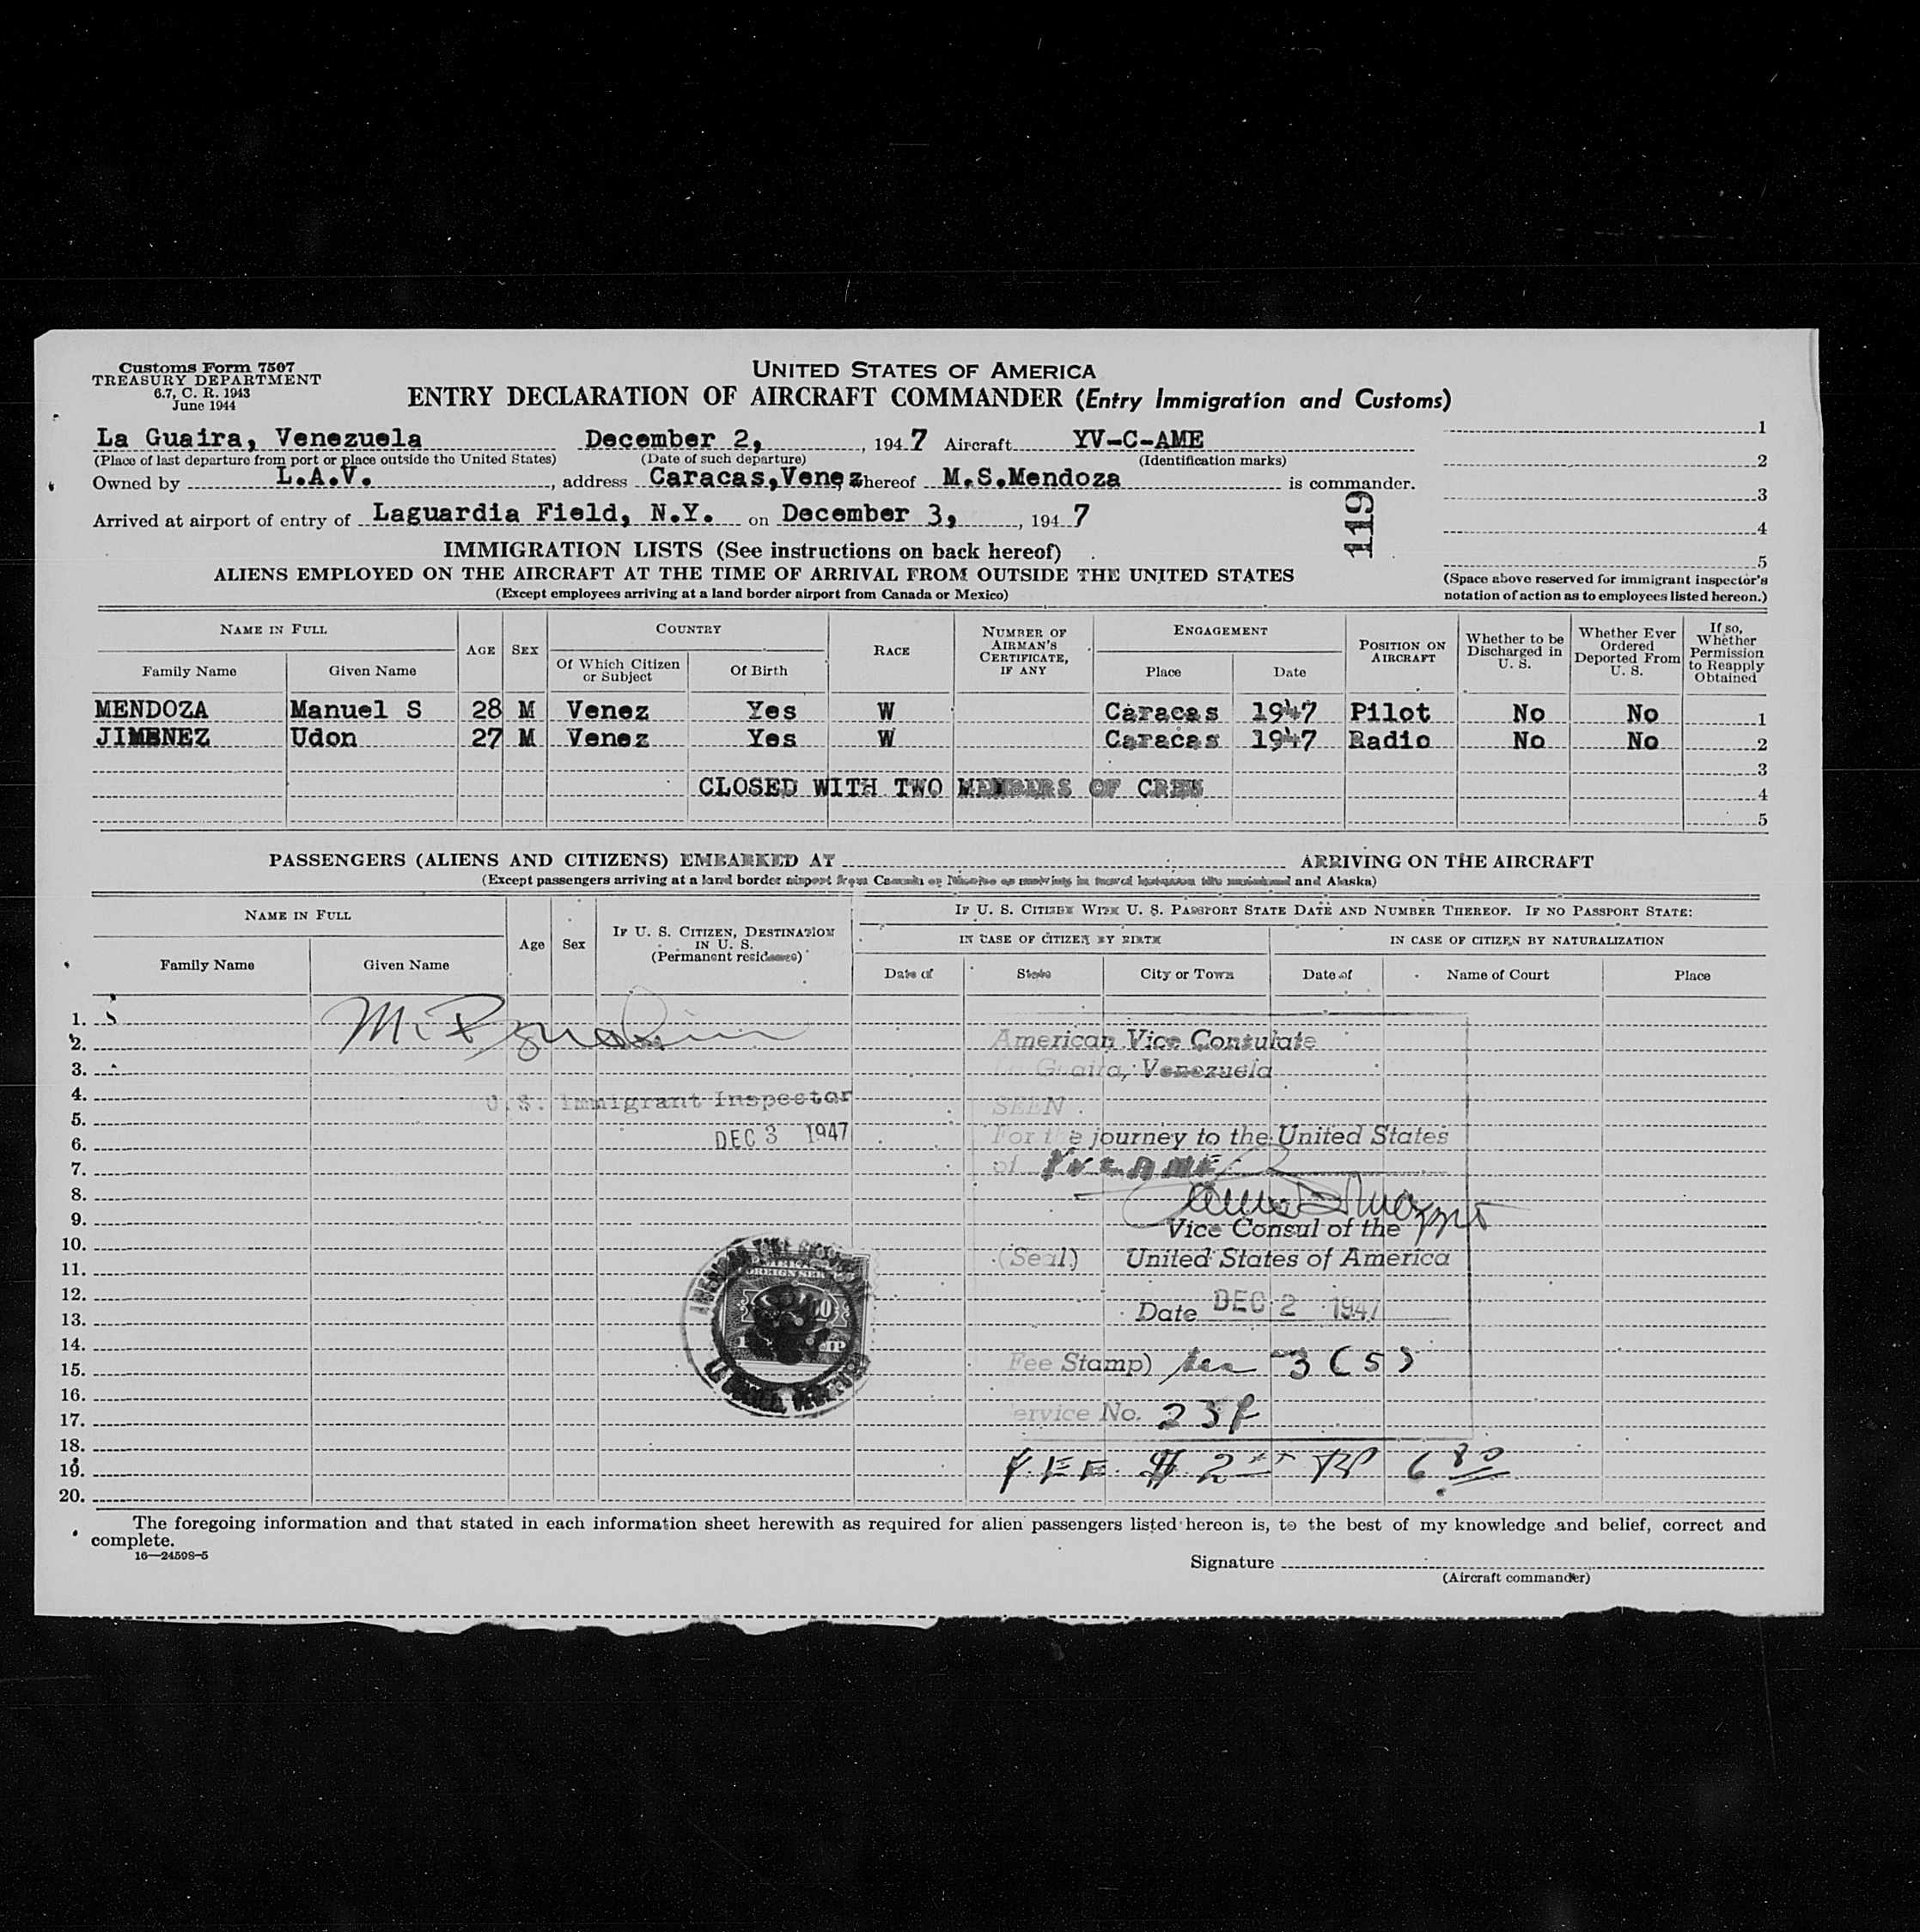 Customs Form 7507
TREASURY DEPARTMENT
6.7, C. R. 1943
June 1944
UNITED STATES OF AMERICA
ENTRY DECLARATION OF AIRCRAFT COMMANDER (Entry Immigration and Customs)
La Guaira, Venezuela December 2, , 1947 Aircraft YV-C-AME
(Place of last departure from port or place outside the United States) (Date of such departure) (Identification marks)
Owned by L.A.V. , address Caracas,Venez hereof M.S.Mendoza is commander.
Arrived at airport of entry of Laguardia Field, N.Y. on December 3, , 1947
119
1
2
3
4
5
(Space above reserved for immigrant inspector's
notation of action as to employees listed hereon.)
IMMIGRATION LISTS (See instructions on back hereof)
ALIENS EMPLOYED ON THE AIRCRAFT AT THE TIME OF ARRIVAL FROM OUTSIDE THE UNITED STATES
(Except employees arriving at a land border airport from Canada or Mexico)
NAME IN FULL
Family Name Given Name
AGE SEX
COUNTRY
Of Which Citizen or Subject Of Birth
RACE
NUMBER OF AIRMAN'S CERTIFICATE, IF ANY
ENGAGEMENT
Place Date
POSITION ON AIRCRAFT
Whether to be Discharged in U. S.
Whether Ever Ordered Deported From U. S.
If so, Whether Permission to Reapply Obtained
MENDOZA Manuel S 28 M Venez Yes W Caracas 1947 Pilot No No 1
JIMENEZ Udon 27 M Venez Yes W Caracas 1947 Radio No No 2
3
CLOSED WITH TWO MEMBERS OF CREW 4
5
PASSENGERS (ALIENS AND CITIZENS) EMBARKED AT ARRIVING ON THE AIRCRAFT
(Except passengers arriving at a land border airport from Canada or and Alaska)
NAME IN FULL
Family Name Given Name
Age Sex
IF U. S. CITIZEN, DESTINATION IN U. S.
(Permanent residence)
IF U. S. CITIZEN WITH U. S. PASSPORT STATE DATE AND NUMBER THEREOF. IF NO PASSPORT STATE:
IN CASE OF CITIZEN BY BIRTH IN CASE OF CITIZEN BY NATURALIZATION
Date of State City or Town Date of Name of Court Place
1.
2.
3.
4.
5.
6.
7.
8.
9.
10.
11.
12.
13.
14.
15.
16.
17.
18.
19.
20.
U.S. Immigrant Inspector
DEC 3 1947
American Vice Consulate
La Guaira, Venezuela
SEEN
For the journey to the United States
of
Vice Consul of the
(Seal) United States of America
Date DEC 2 1947
Fee Stamp) 3 (5)
Service No.
FEE $ 2
The foregoing information and that stated in each information sheet herewith as required for alien passengers listed hereon is, to the best of my knowledge and belief, correct and
complete.
16—24598-5
Signature
(Aircraft commander)